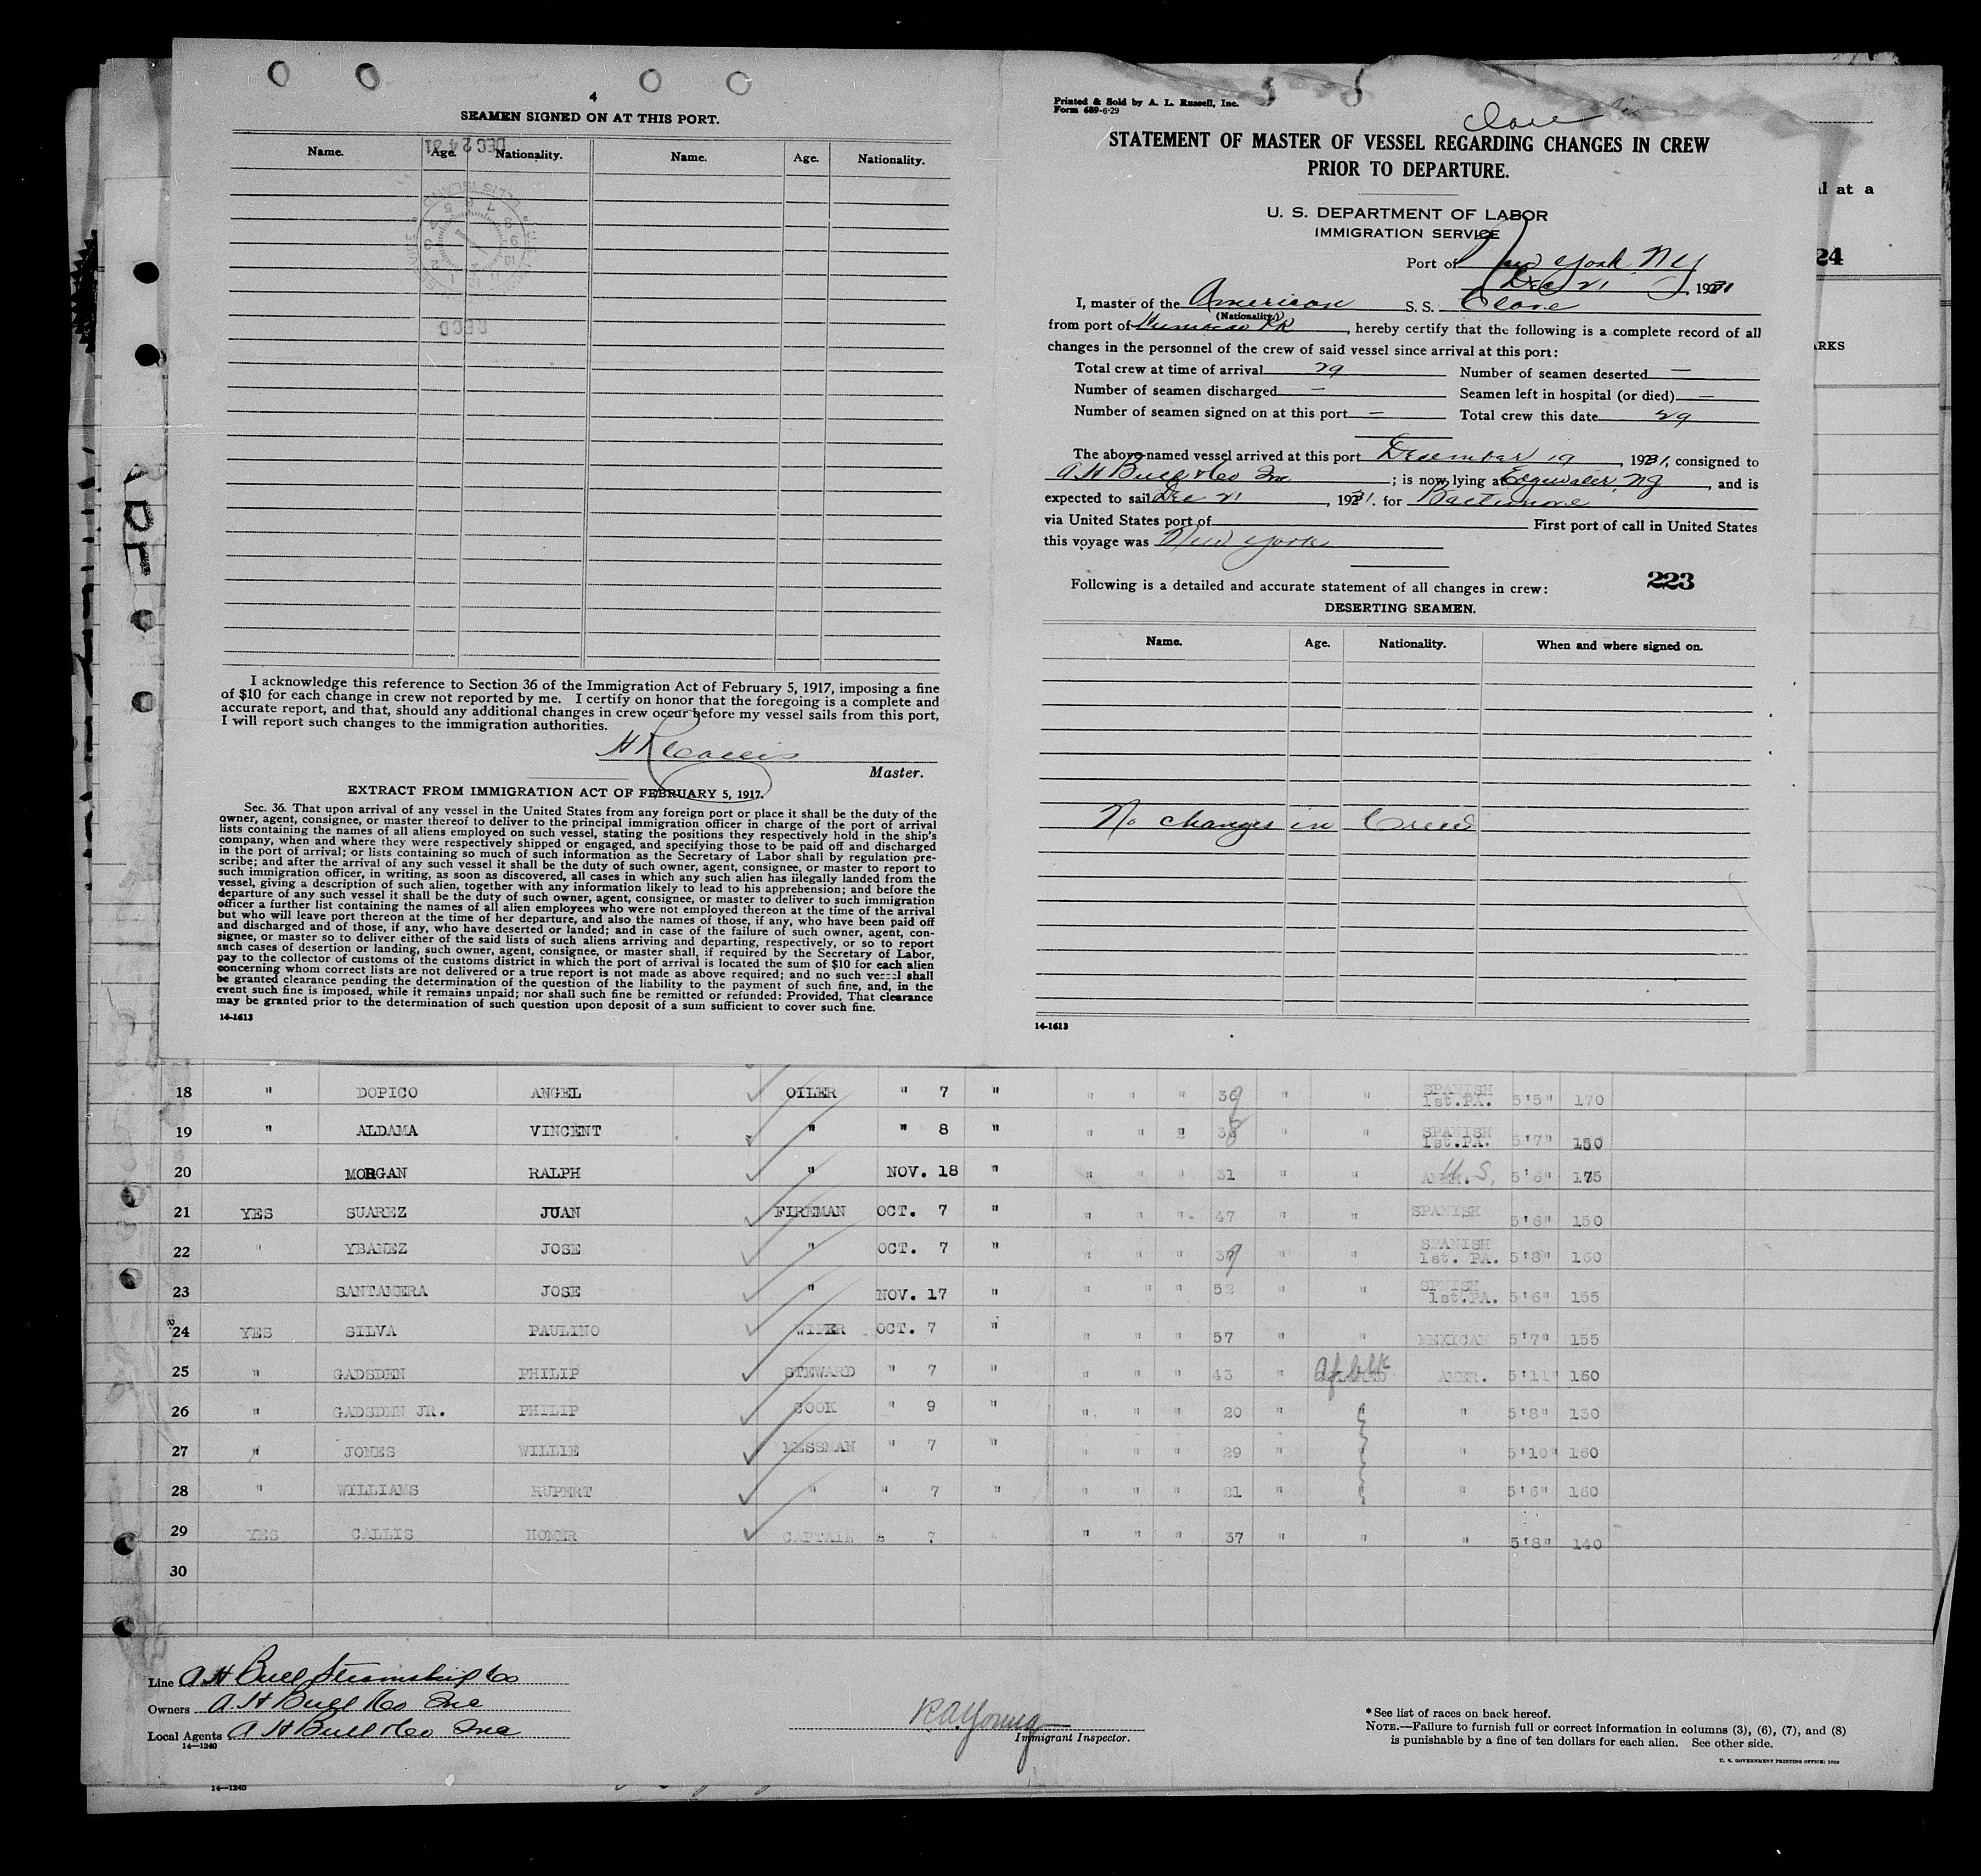 4
SEAMEN SIGNED ON AT THIS PORT.
DEC 24 31
Name. Age. Nationality. Name. Age. Nationality.
RECD
I acknowledge this reference to Section 36 of the Immigration Act of February 5, 1917, imposing a fine
of $10 for each change in crew not reported by me. I certify on honor that the foregoing is a complete and
accurate report, and that, should any additional changes in crew occur before my vessel sails from this port,
I will report such changes to the immigration authorities.
H R Callis
Master.
EXTRACT FROM IMMIGRATION ACT OF FEBRUARY 5, 1917.
Sec. 36. That upon arrival of any vessel in the United States from any foreign port or place it shall be the duty of the
owner, agent, consignee, or master thereof to deliver to the principal immigration officer in charge of the port of arrival
lists containing the names of all aliens employed on such vessel, stating the positions they respectively hold in the ship's
company, when and where they were respectively shipped or engaged, and specifying those to be paid off and discharged
in the port of arrival; or lists containing so much of such information as the Secretary of Labor shall by regulation pre-
scribe; and after the arrival of any such vessel it shall be the duty of such owner, agent, consignee, or master to report to
such immigration officer, in writing, as soon as discovered, all cases in which any such alien has illegally landed from the
vessel, giving a description of such alien, together with any information likely to lead to his apprehension; and before the
departure of any such vessel it shall be the duty of such owner, agent, consignee, or master to deliver to such immigration
officer a further list containing the names of all alien employees who were not employed thereon at the time of the arrival
but who will leave port thereon at the time of her departure, and also the names of those, if any, who have been paid off
and discharged and of those, if any, who have deserted or landed; and in case of the failure of such owner, agent, con-
signee, or master so to deliver either of the said lists of such aliens arriving and departing, respectively, or so to report
such cases of desertion or landing, such owner, agent, consignee, or master shall, if required by the Secretary of Labor,
pay to the collector of customs of the customs district in which the port of arrival is located the sum of $10 for each alien
concerning whom correct lists are not delivered or a true report is not made as above required; and no such vessel shall
be granted clearance pending the determination of the question of the liability to the payment of such fine, and, in the
event such fine is imposed, while it remains unpaid; nor shall such fine be remitted or refunded: Provided, That clearance
may be granted prior to the determination of such question upon deposit of a sum sufficient to cover such fine.
14-1613
Printed & Sold by A. L. Russell, Inc.
Form 689-6-29
Clare
STATEMENT OF MASTER OF VESSEL REGARDING CHANGES IN CREW
PRIOR TO DEPARTURE.
U. S. DEPARTMENT OF LABOR
IMMIGRATION SERVICE
Port of New York NY
Dec 21, 1931
I, master of the American S. S. Clare
(Nationality)
from port of Humacao PR, hereby certify that the following is a complete record of all
changes in the personnel of the crew of said vessel since arrival at this port:
Total crew at time of arrival 29 Number of seamen deserted —
Number of seamen discharged — Seamen left in hospital (or died) —
Number of seamen signed on at this port — Total crew this date 29
The above-named vessel arrived at this port December 19, 1931, consigned to
A H Bull & Co Inc; is now lying at Edgewater, NJ, and is
expected to sail Dec 21, 1931. for Baltimore
via United States port of First port of call in United States
this voyage was New York
Following is a detailed and accurate statement of all changes in crew: 223
DESERTING SEAMEN.
Name. Age. Nationality. When and where signed on.
No changes in Crew
14-1613
l at a
24
ARKS
18 " DOPICO ANGEL OILER " 7 " " " " 39 " " SPANISH 1st.PA. 5'5" 170
19 " ALDAMA VINCENT " " 8 " " " " 38 " " SPANISH 1st.PA. 5'7" 150
20 MORGAN RALPH " NOV. 18 " " " " 31 " " U.S. 5'6" 175
21 YES SUAREZ JUAN FIREMAN OCT. 7 " " " " 47 " " SPANISH 5'6" 150
22 " YBANEZ JOSE " OCT. 7 " " " " 39 " " SPANISH 1st. PA. 5'8" 160
23 SANTAMERA JOSE " NOV. 17 " " " " 52 " " SPNISH 1st.PA. 5'6" 155
24 YES SILVA PAULINO WIPER OCT. 7 " " " " 57 " " MEXICAN 5'7" 155
25 " GADSDEN PHILIP STEWARD " 7 " " " " 43 " Af blk AMER. 5'11" 160
26 " GADSDEN JR. PHILIP COOK " 9 " " " " 20 " " " 5'8" 130
27 " JONES WILLIE MESSMAN " 7 " " " " 29 " " " 5'10" 160
28 " WILLIAMS RUPERT " " 7 " " " " 21 " " " 5'6" 160
29 YES CALLIS HOMER CAPTAIN " 7 " " " " 37 " " " 5'8" 140
30
Line A H Bull Steamship Co
Owners A. H Bull & Co Inc
Local Agents A H Bull & Co Inc
14—1240
R.A. Young
Immigrant Inspector.
*See list of races on back hereof.
NOTE.—Failure to furnish full or correct information in columns (3), (6), (7), and (8)
is punishable by a fine of ten dollars for each alien. See other side.
U. S. GOVERNMENT PRINTING OFFICE: 1929
14—1240